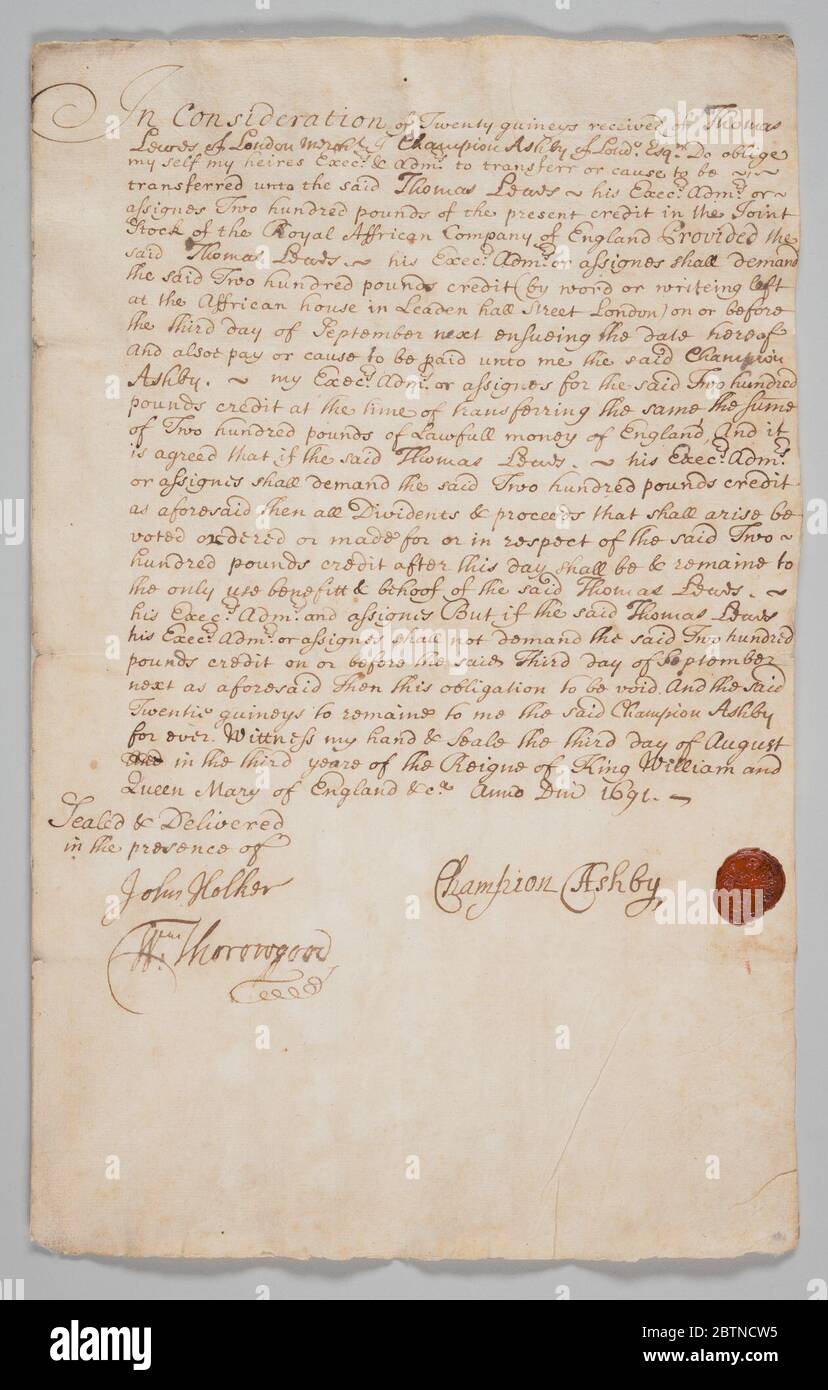 In Consideration of Twenty guineys received of Thomas
Lewes of London Merch.t I Champion Ashby of Lond.o Esq.r Do oblige
my self my heires Exec.rs & Adm.rs to transferr or cause to be
transferred unto the said Thomas Lewes ~ his Exec.rs Adm.rs or ~
assignes Two hundred pounds of the present credit in the Joint
Stock of the Royal Affrican Company of England Provided the
said Thomas Lewes ~ his Exec.rs Adm.rs or assignes shall demand
the said Two hundred pounds credit (by word or writeing left
at the Affrican house in Leaden hall Street London) on or before
the third day of September next ensueing the date hereof
And alsoe pay or cause to be paid unto me the said Champion
Ashby. ~ my Exec.rs Adm.rs or assignes for the said Two hundred
pounds credit at the time of transferring the same, the sume
of Two hundred pounds of Lawfull money of England, And it
is agreed that if the said Thomas Lewes. ~ his Exec.rs Adm.rs
or assignes shall demand the said Two hundred pounds credit
as aforesaid then all Dividents & proceeds that shall arise be
voted ordered or made for or in respect of the said Two ~
hundred pounds credit after this day shall be & remaine to
the only use benefitt & behoof of the said Thomas Lewes. ~
his Exec.rs Adm.rs and assignes But if the said Thomas Lewes
his Exec.rs Adm.rs or assignes shall not demand the said Two hundred
pounds credit on or before the said Third day of September
next as aforesaid Then this obligation to be void. And the said
Twentie guineys to remaine to me the said Champion Ashby
for ever. Wittness my hand & Seale the third day of August
in the third yeare of the Reigne of King William and
Queen Mary of England &c.a Anno Dni 1691. ~
Sealed & Delivered
in the presence of
John Holker
Champion Ashby
W.m Thorowgood
alamy
Image ID: 2BTNCW5
www.alamy.com